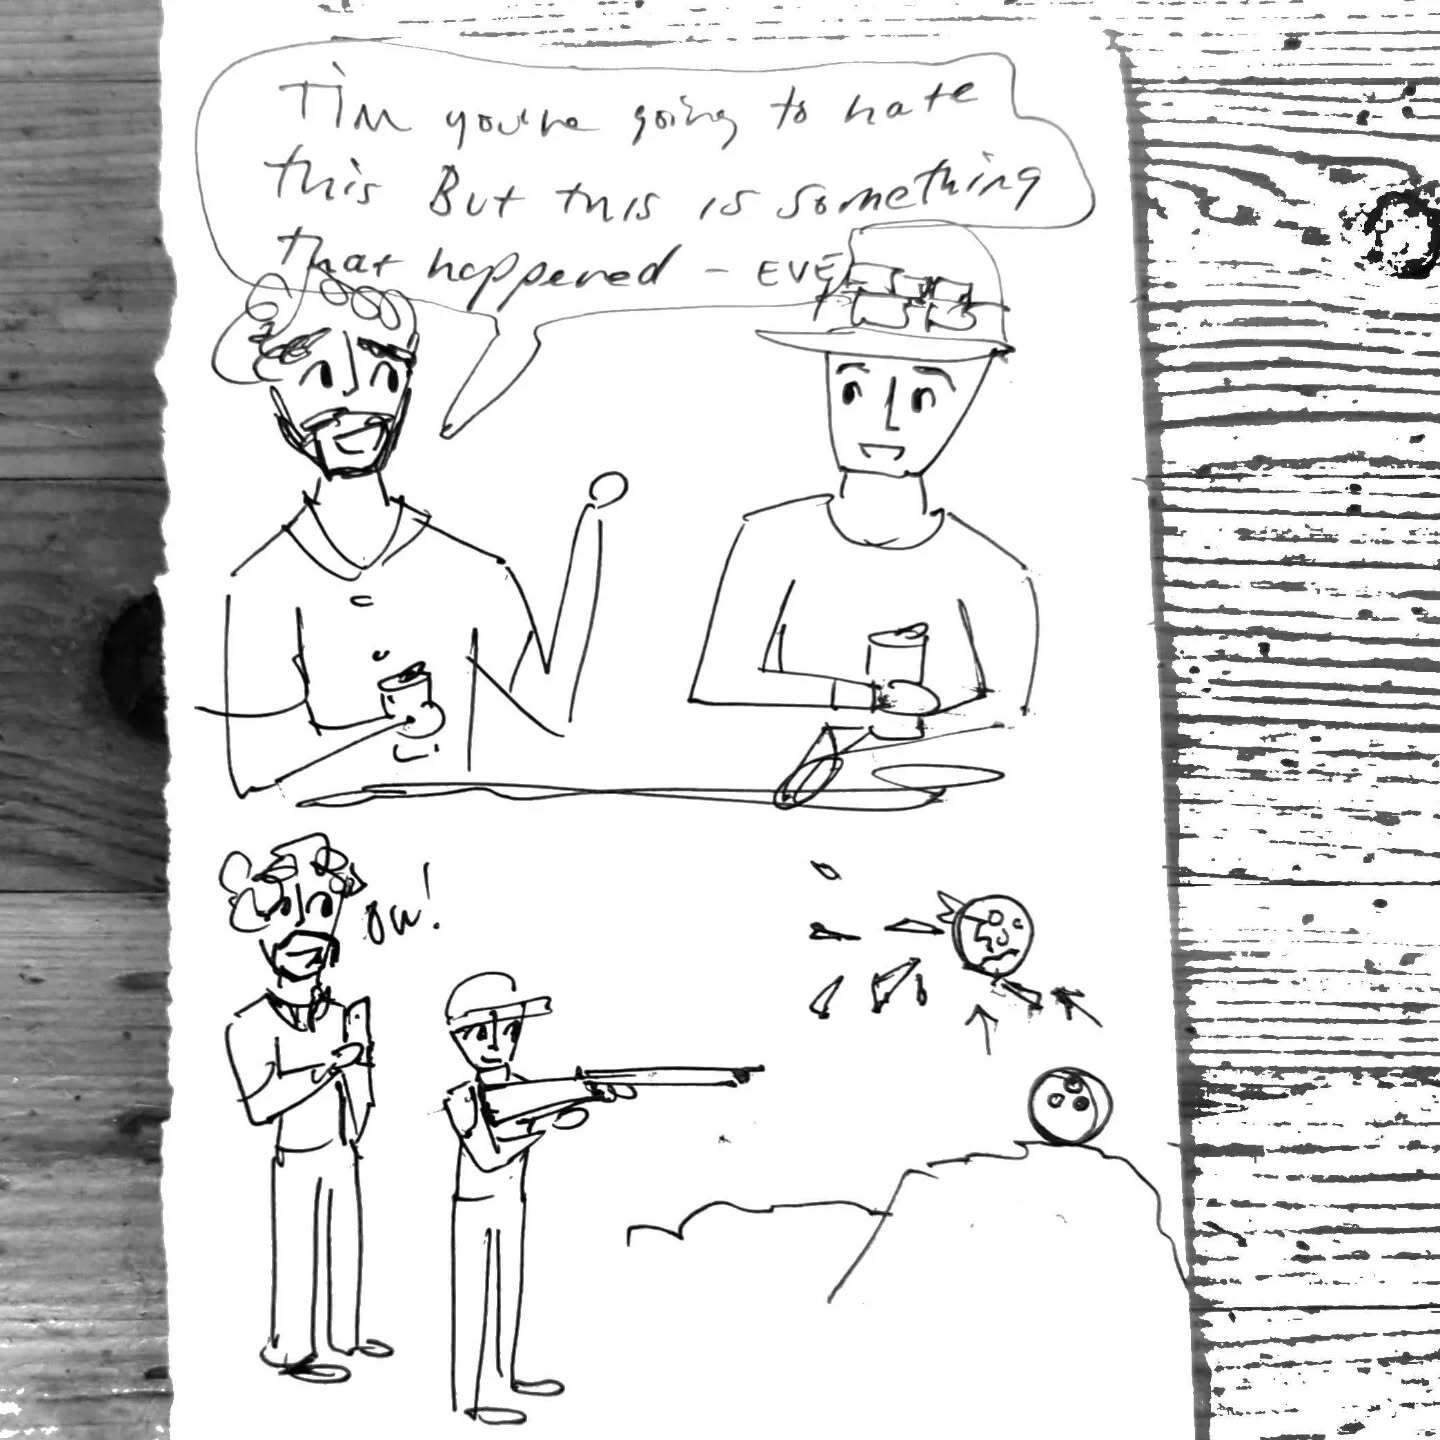 Tim you're going to hate
this But this is something
that happened – EVE
ow!